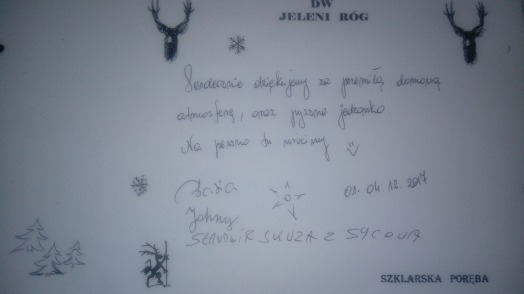 DW
JELENI RÓG
Serdecznie dziękujemy za przemiłą domową
atmosferę, oraz pyszne jedzonko
Na pewno tu wrócimy
01. 04 12. 2017
SŁAWOMIR SKUZA Z SYCOWA
SZKLARSKA PORĘBA